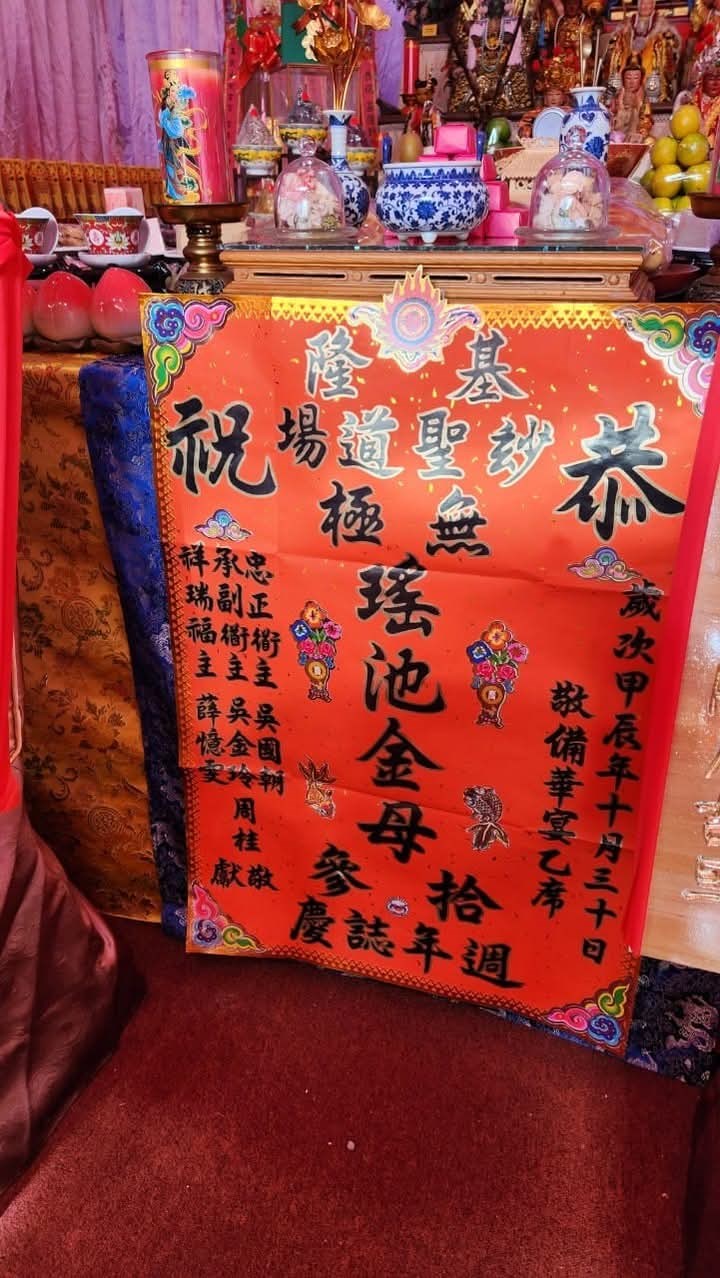 恭祝
歲次甲辰年十月三十日
敬備華宴乙席
基隆
玅聖道場
無極
瑤池金母
拾參
週年誌慶
忠正衙主 吳國朝
承副衙主 吳金玲
祥瑞福主 薛憶雯
周桂
敬獻